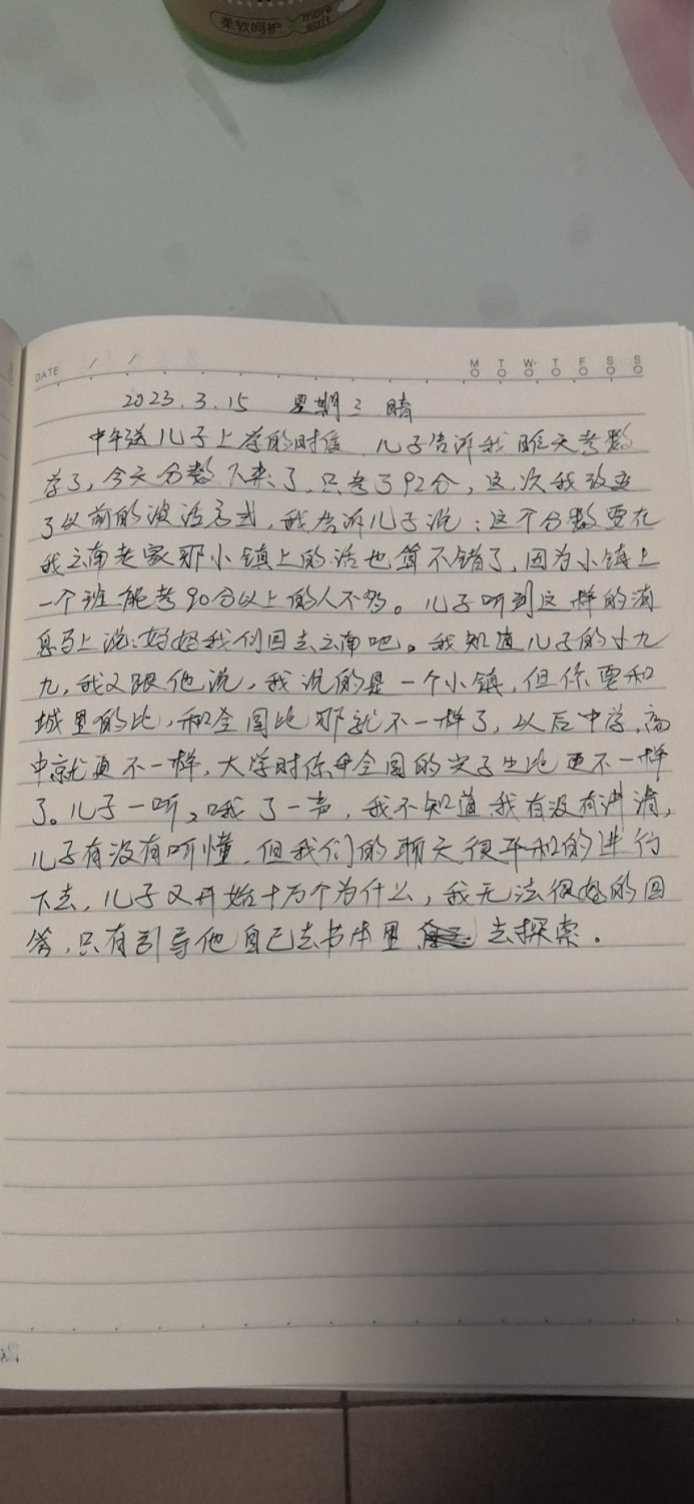 柔软呵护
more
soft
DATE / /
M T W T F S S
2023.3.15 星期三 晴
中午送儿子上学的时候 儿子告诉我昨天考数
学了，今天分数下来了，只考了92分，这次我改变
了以前的说话方式，我告诉儿子说：这个分数要在
我云南老家那小镇上的话也算不错了，因为小镇上
一个班能考90分以上的人不多。儿子听到这样的消
息马上说：妈妈我们回去云南吧。我知道儿子的小九
九，我又跟他说，我说的是一个小镇，但你要和
城里的比，和全国比那就不一样了，以后中学，高
中就更不一样，大学时你和全国的尖子生比更不一样
了。儿子一听，哦了一声，我不知道我有没有讲清，
儿子有没有听懂，但我们的聊天很平和的进行
下去，儿子又开始十万个为什么，我无法很好的回
答，只有引导他自己去书本里去探索。